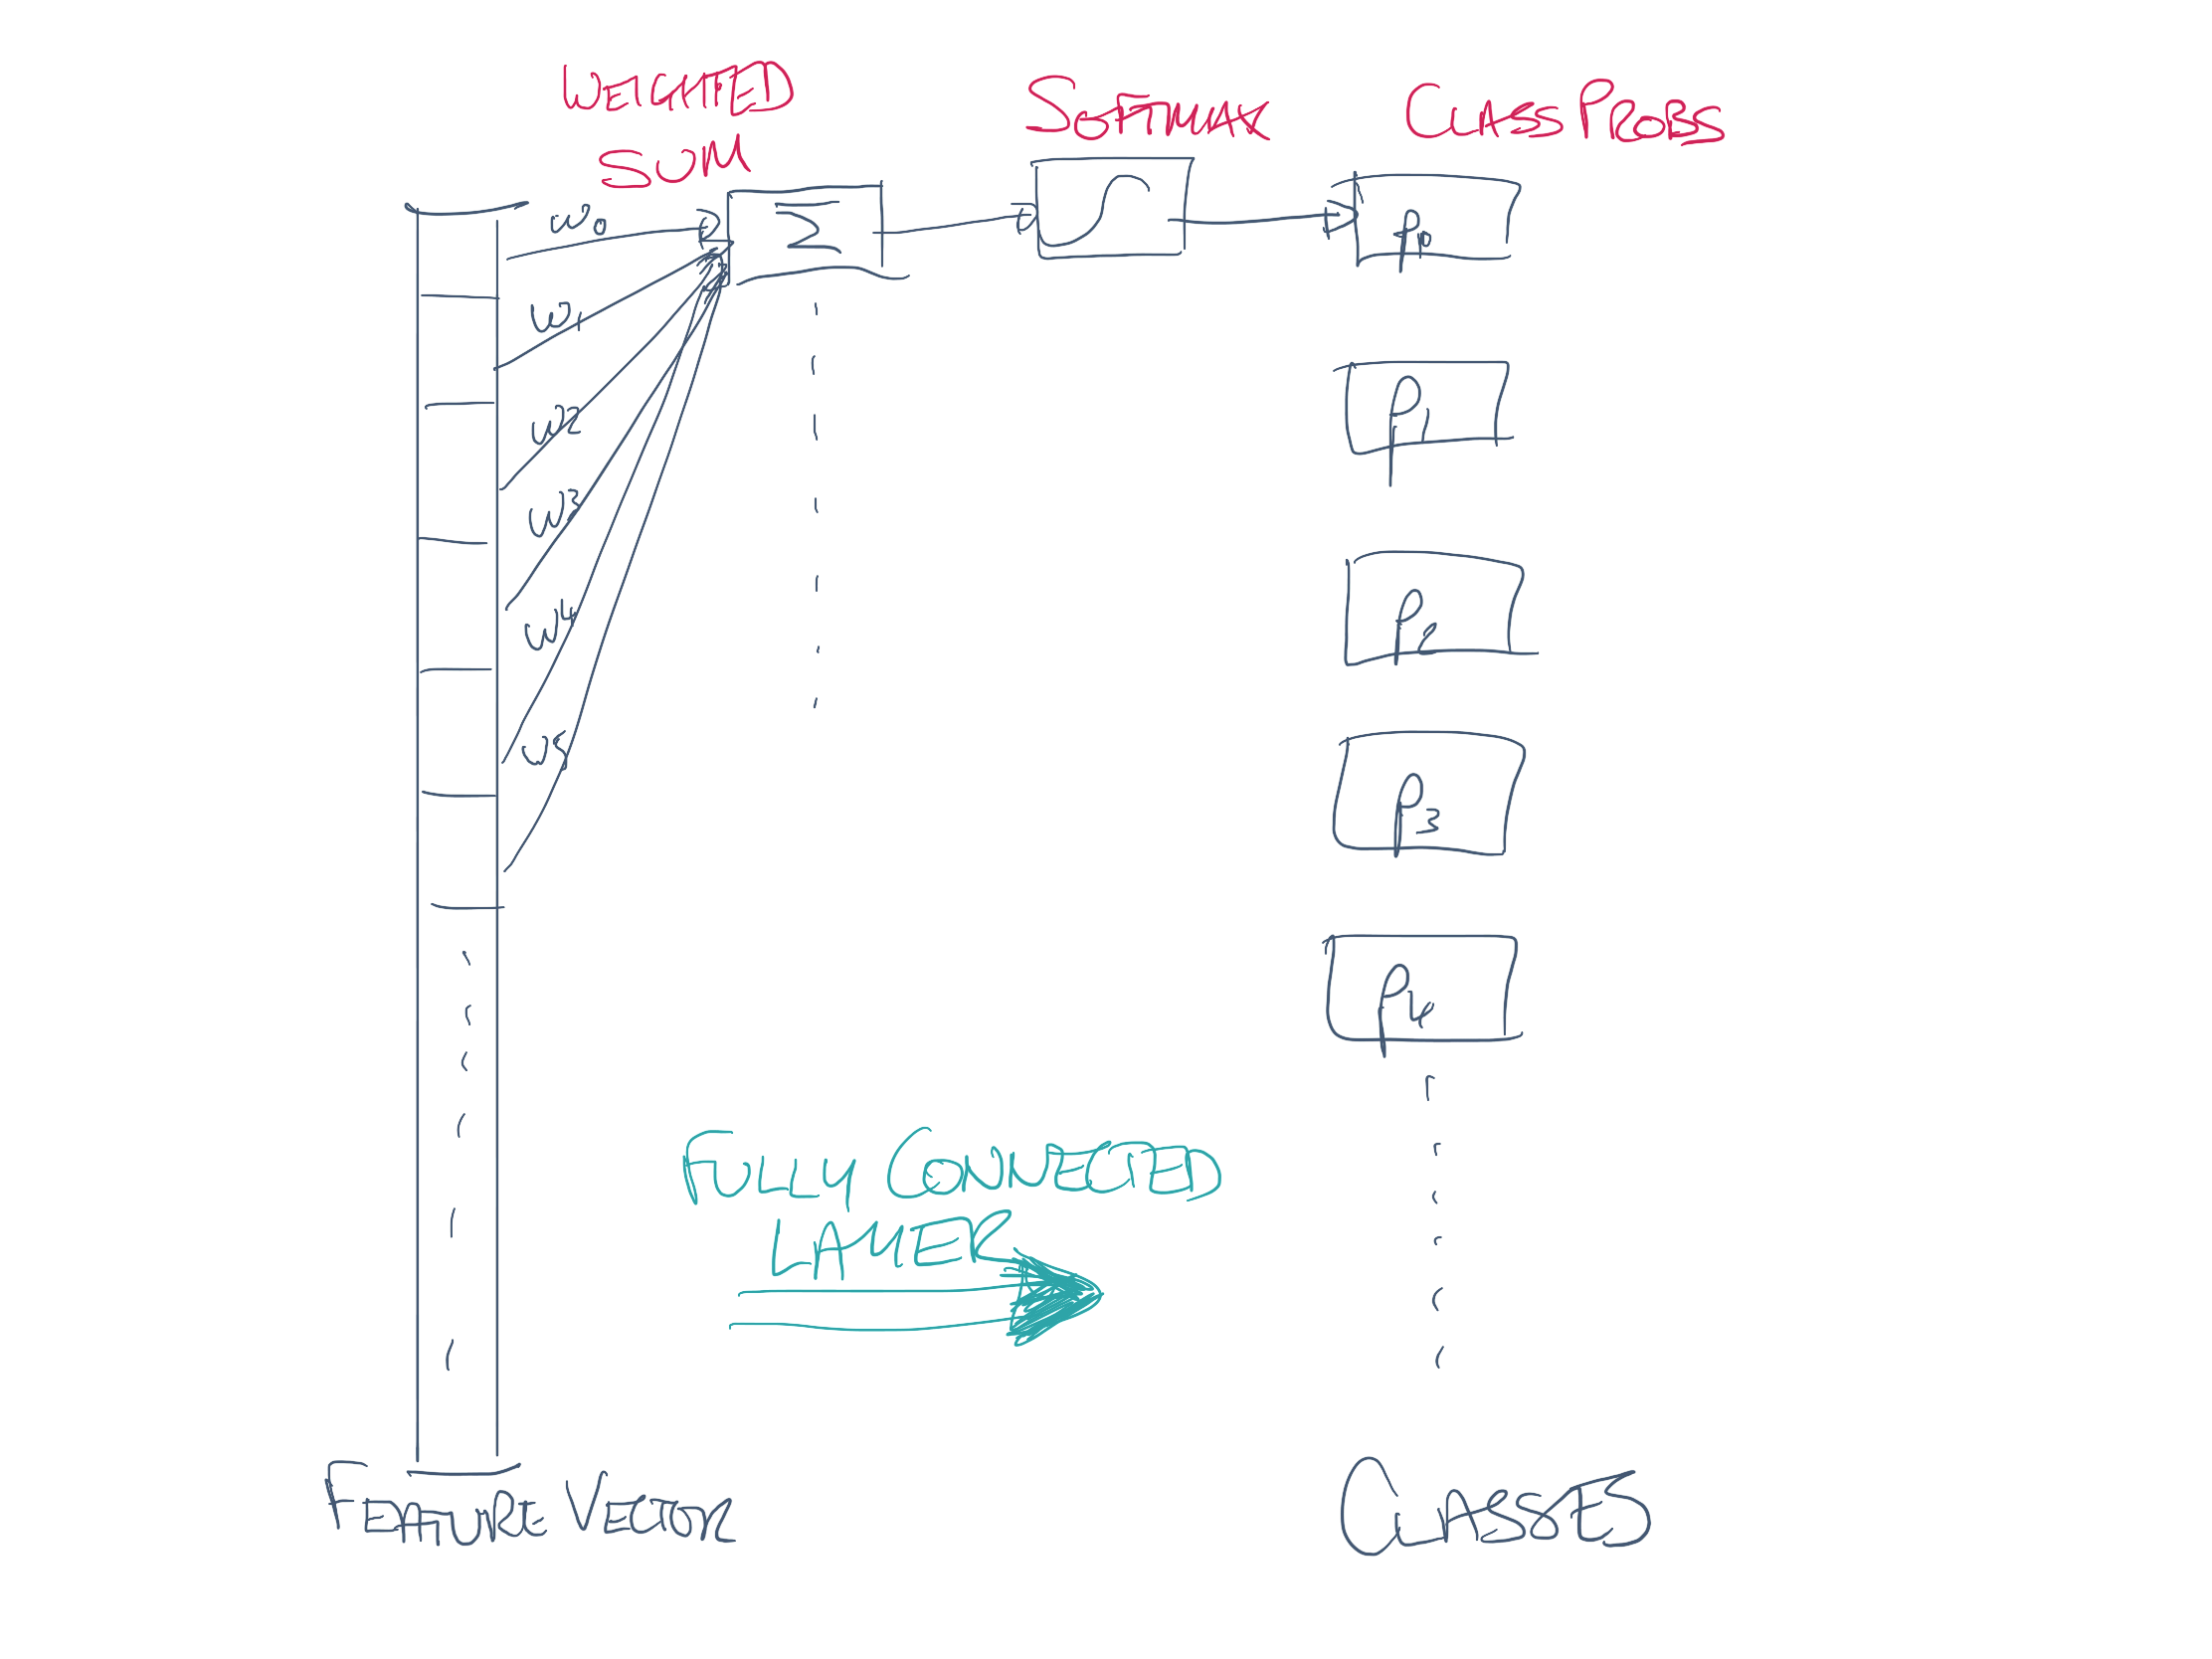 WEIGHTED
SUM
SOFTMAX
CLASS PROBS
w0
Σ
p0
w1
p1
w2
w3
p2
w4
w5
p3
p4
FULLY CONNECTED
LAYER
FEATURE VECTOR
CLASSES